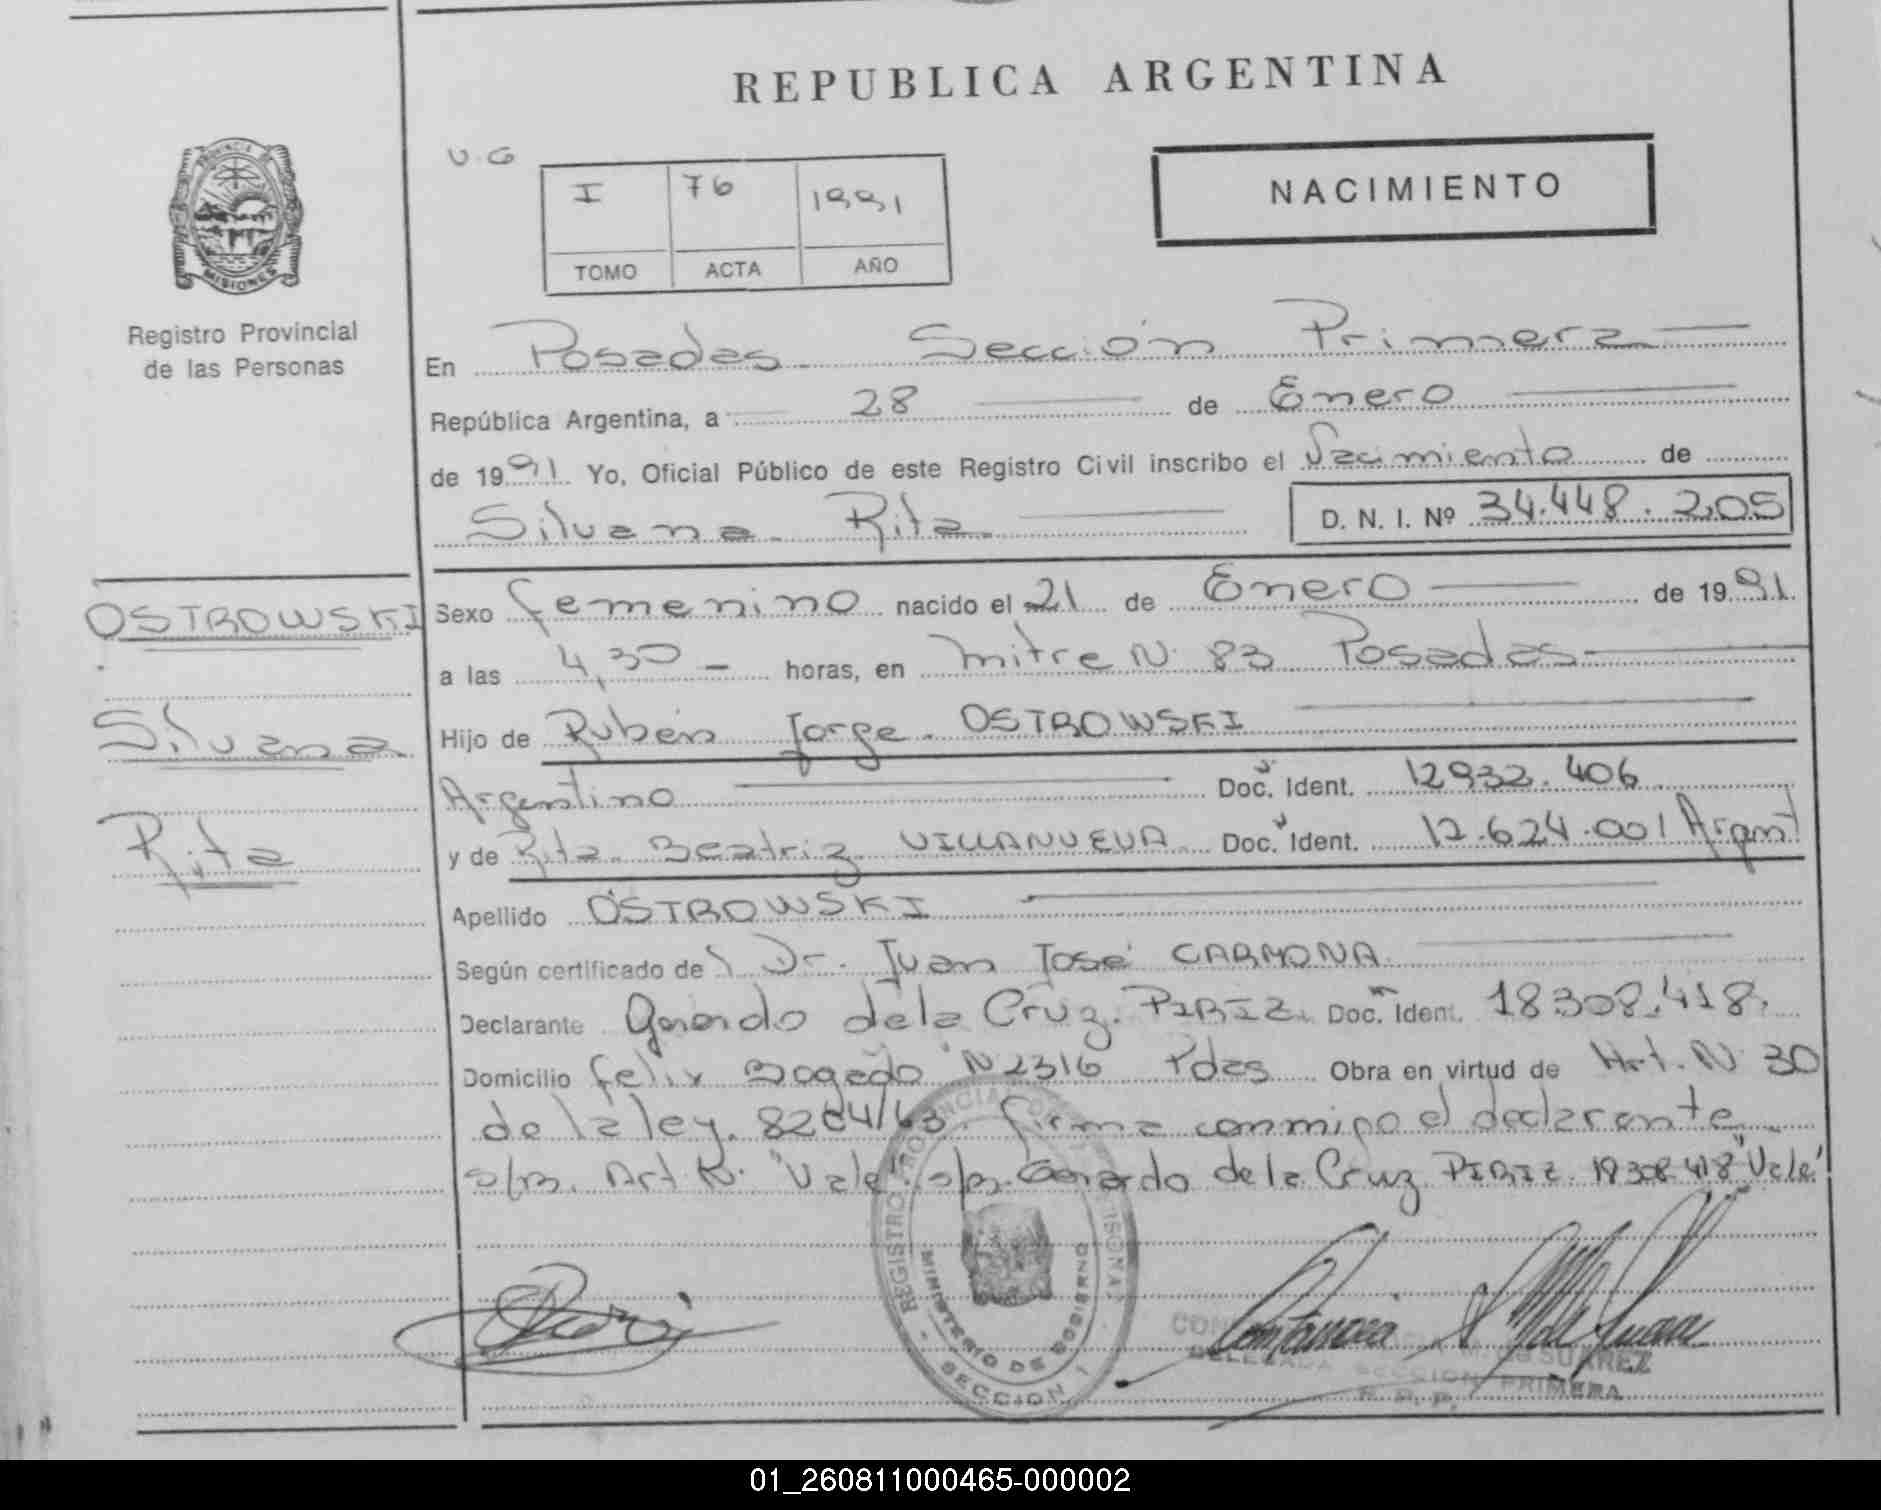 REPUBLICA ARGENTINA
U.G
I 76 1991
TOMO ACTA AÑO
NACIMIENTO
PROVINCIA DE
MISIONES
Registro Provincial
de las Personas
En Posadas Sección Primera
República Argentina, a 28 de Enero
de 1991 Yo, Oficial Público de este Registro Civil inscribo el Nacimiento de
Silvana Rita D. N. I. Nº 34.448.205
OSTROWSKI
Silvana
Rita
Sexo femenino nacido el 21 de Enero de 1991
a las 4,30 horas, en mitre N 83 Posadas
Hijo de Rubén Jorge OSTROWSKI
Argentino Doc. Ident. 12932.406
y de Rita Beatriz VILLANUEVA Doc. Ident. 12.624.001 Argent
Apellido OSTROWSKI
Según certificado de Dr. Juan José CARMONA
Declarante Gerardo de la Cruz PIRIZ Doc. Ident. 18.308.418
Domicilio felix Bogado N 2316 Pdas Obra en virtud de Art. N 30
de la ley 8204/63 firma conmigo el declarante
s/r. Art N. "Vale" s/r. Gerardo de la Cruz PIRIZ 18308418 "Vale"
REGISTRO PROVINCIAL DE
MINISTERIO DE GOBIERNO
SECCION 1
SUAREZ
DELEGADA SECCION PRIMERA
R. P. P.
01_260811000465-000002